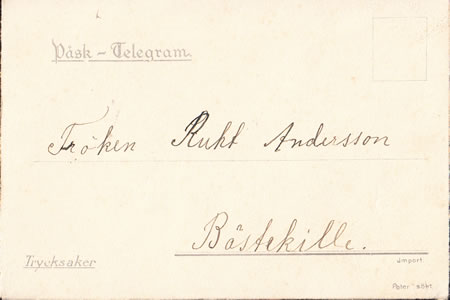 Påsk - Telegram.
Fröken Ruht Andersson
Bästekille.
Trycksaker
Import
Pater sökt